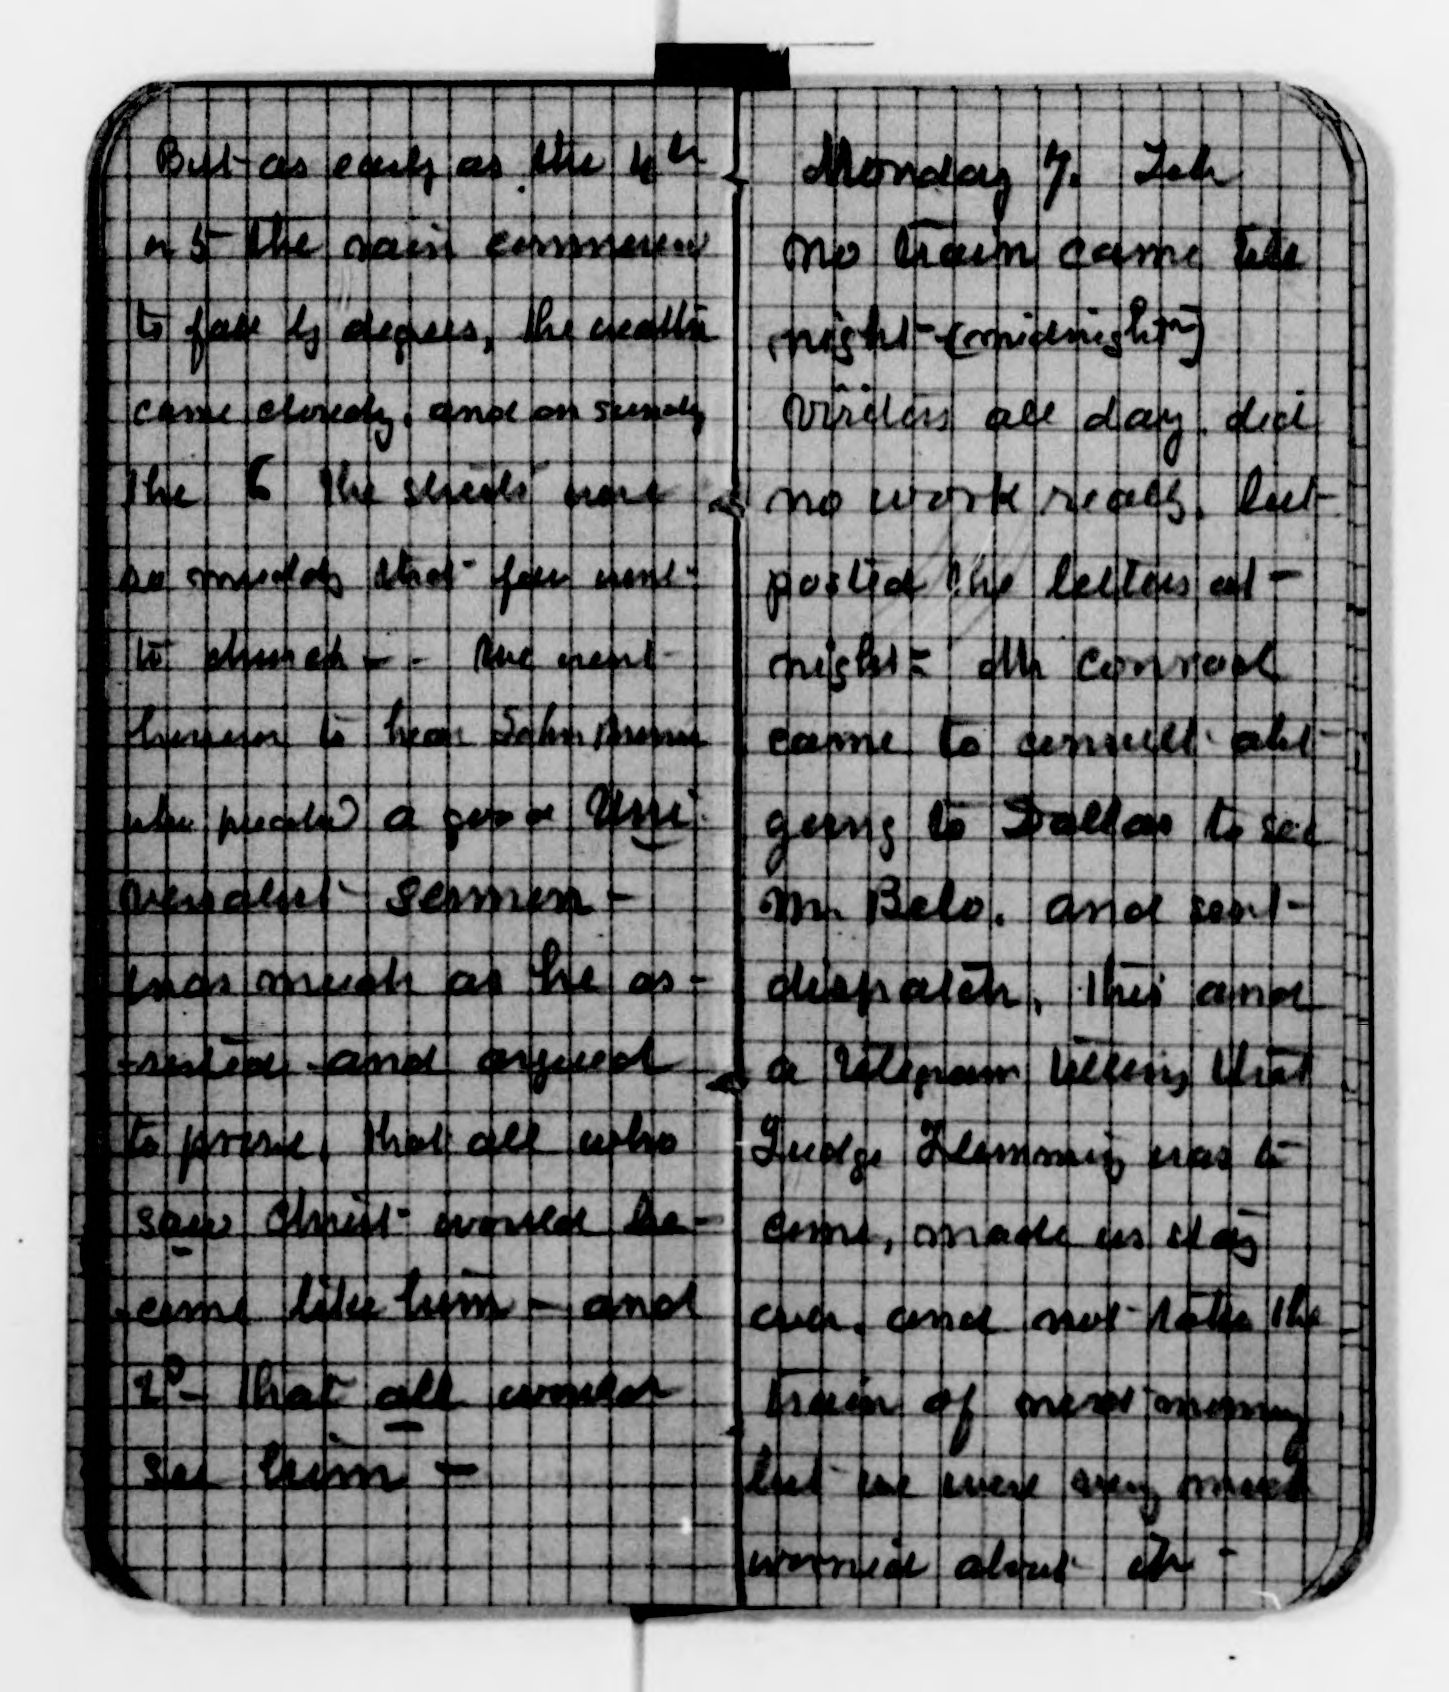 But as early as the 4th
or 5 the rain commenced
to fall by degrees, the weather
came cloudy, and on sunday
the 6 the streets were
so muddy that few went
to church - - We went
however to hear John
who preached a good Uni
versalist sermon -
inas much as he as-
-serted and argued
to prove, that all who
saw Christ would be-
-come like him - and
2º - that all would
see him -
Monday 7. Feb
no train came till
night - (midnight)
all day. did
no work really, but
posted the letters at -
night = Mr Conrad
came to consult abt
going to Dallas to see
Mr. Belo. and sent
dispatch, this and
a telegram telling that
Judge Flemming was to
come, made us stay
over, and not take the
train of next morning
but we were very much
worried about it -